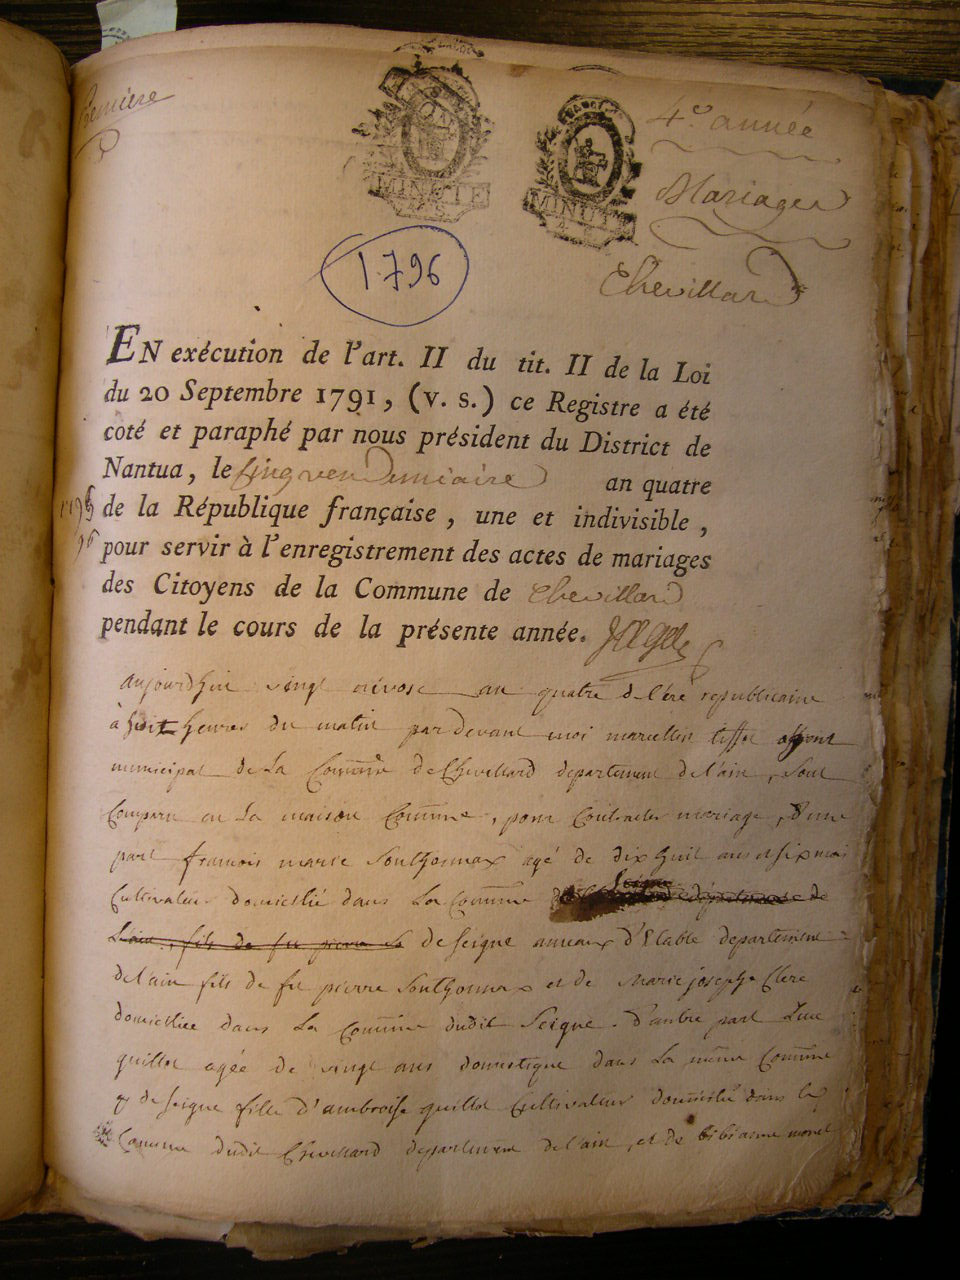 Premiere
MINUTE
MINUTE
4.e année
Mariages
Chevillard
1796
EN exécution de l'art. II du tit. II de la Loi
du 20 Septembre 1791, (v. s.) ce Registre a été
coté et paraphé par nous président du District de
Nantua, le Cinq vendemiaire an quatre
de la République française, une et indivisible,
pour servir à l'enregistrement des actes de mariages
des Citoyens de la Commune de Chevillard
pendant le cours de la présente année.
1795
96
aujourdhui vingt nivose an quatre de l'ère republicaine
à huit heures du matin par devant moi marcellin tissot
municipal de la Comune de Chevillard departement de l'ain, sont
Comparu en la maison Comune, pour Contracter mariage, d'une
part francois marie Sonthonnax agé de dix huit ans et six mois
Cultivateur domicilié dans la Comune Seigne departement de
L'ain, fils de fu pierre So de Seigne anneax d'Etable departement
de l'ain fils de fu pierre Sonthonnax et de Marie josephe Clerc
domiciliee dans la Comune dudit Seigne. d'autre part
guillot agée de vingt ans domestique dans la même Comune
de Seigne fille d'ambroise guillot Cultivateur domicilié dans la
Comune dudit Chevillard departement de l'ain, et de bibianne moret